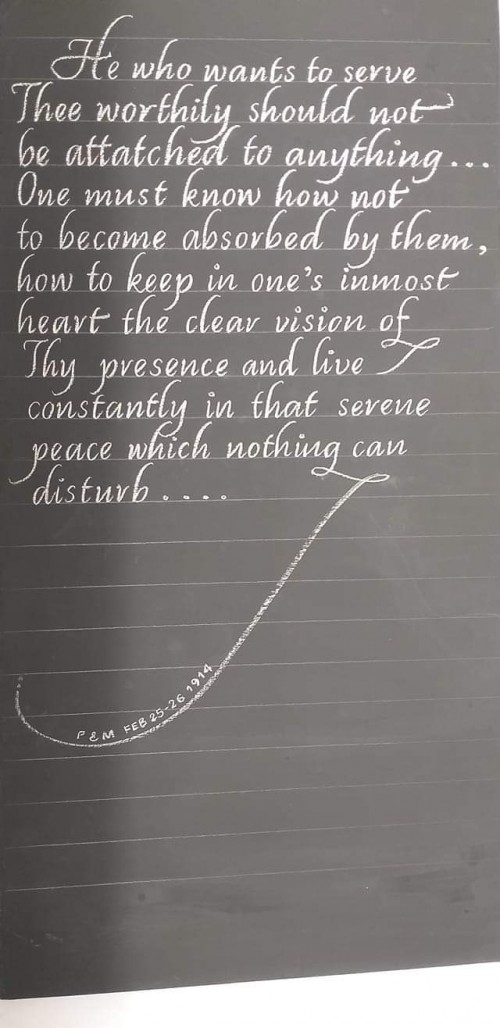 He who wants to serve
Thee worthily should not
be attatched to anything...
One must know how not
to become absorbed by them,
how to keep in one's inmost
heart the clear vision of
Thy presence and live
constantly in that serene
peace which nothing can
disturb....
P & M FEB 25-26 1914